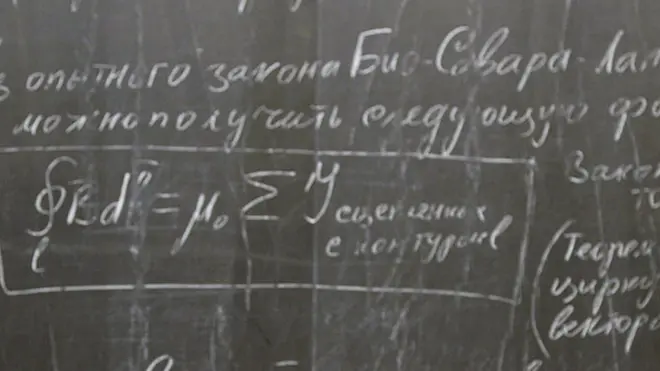 опытного закона Био-Савара-Лап
можно получить следующую фо
∮B⃗dl⃗ = μ₀ ∑ I сцепленных
l с контуром l
Закон
то
(Теорем
цирку
вектора